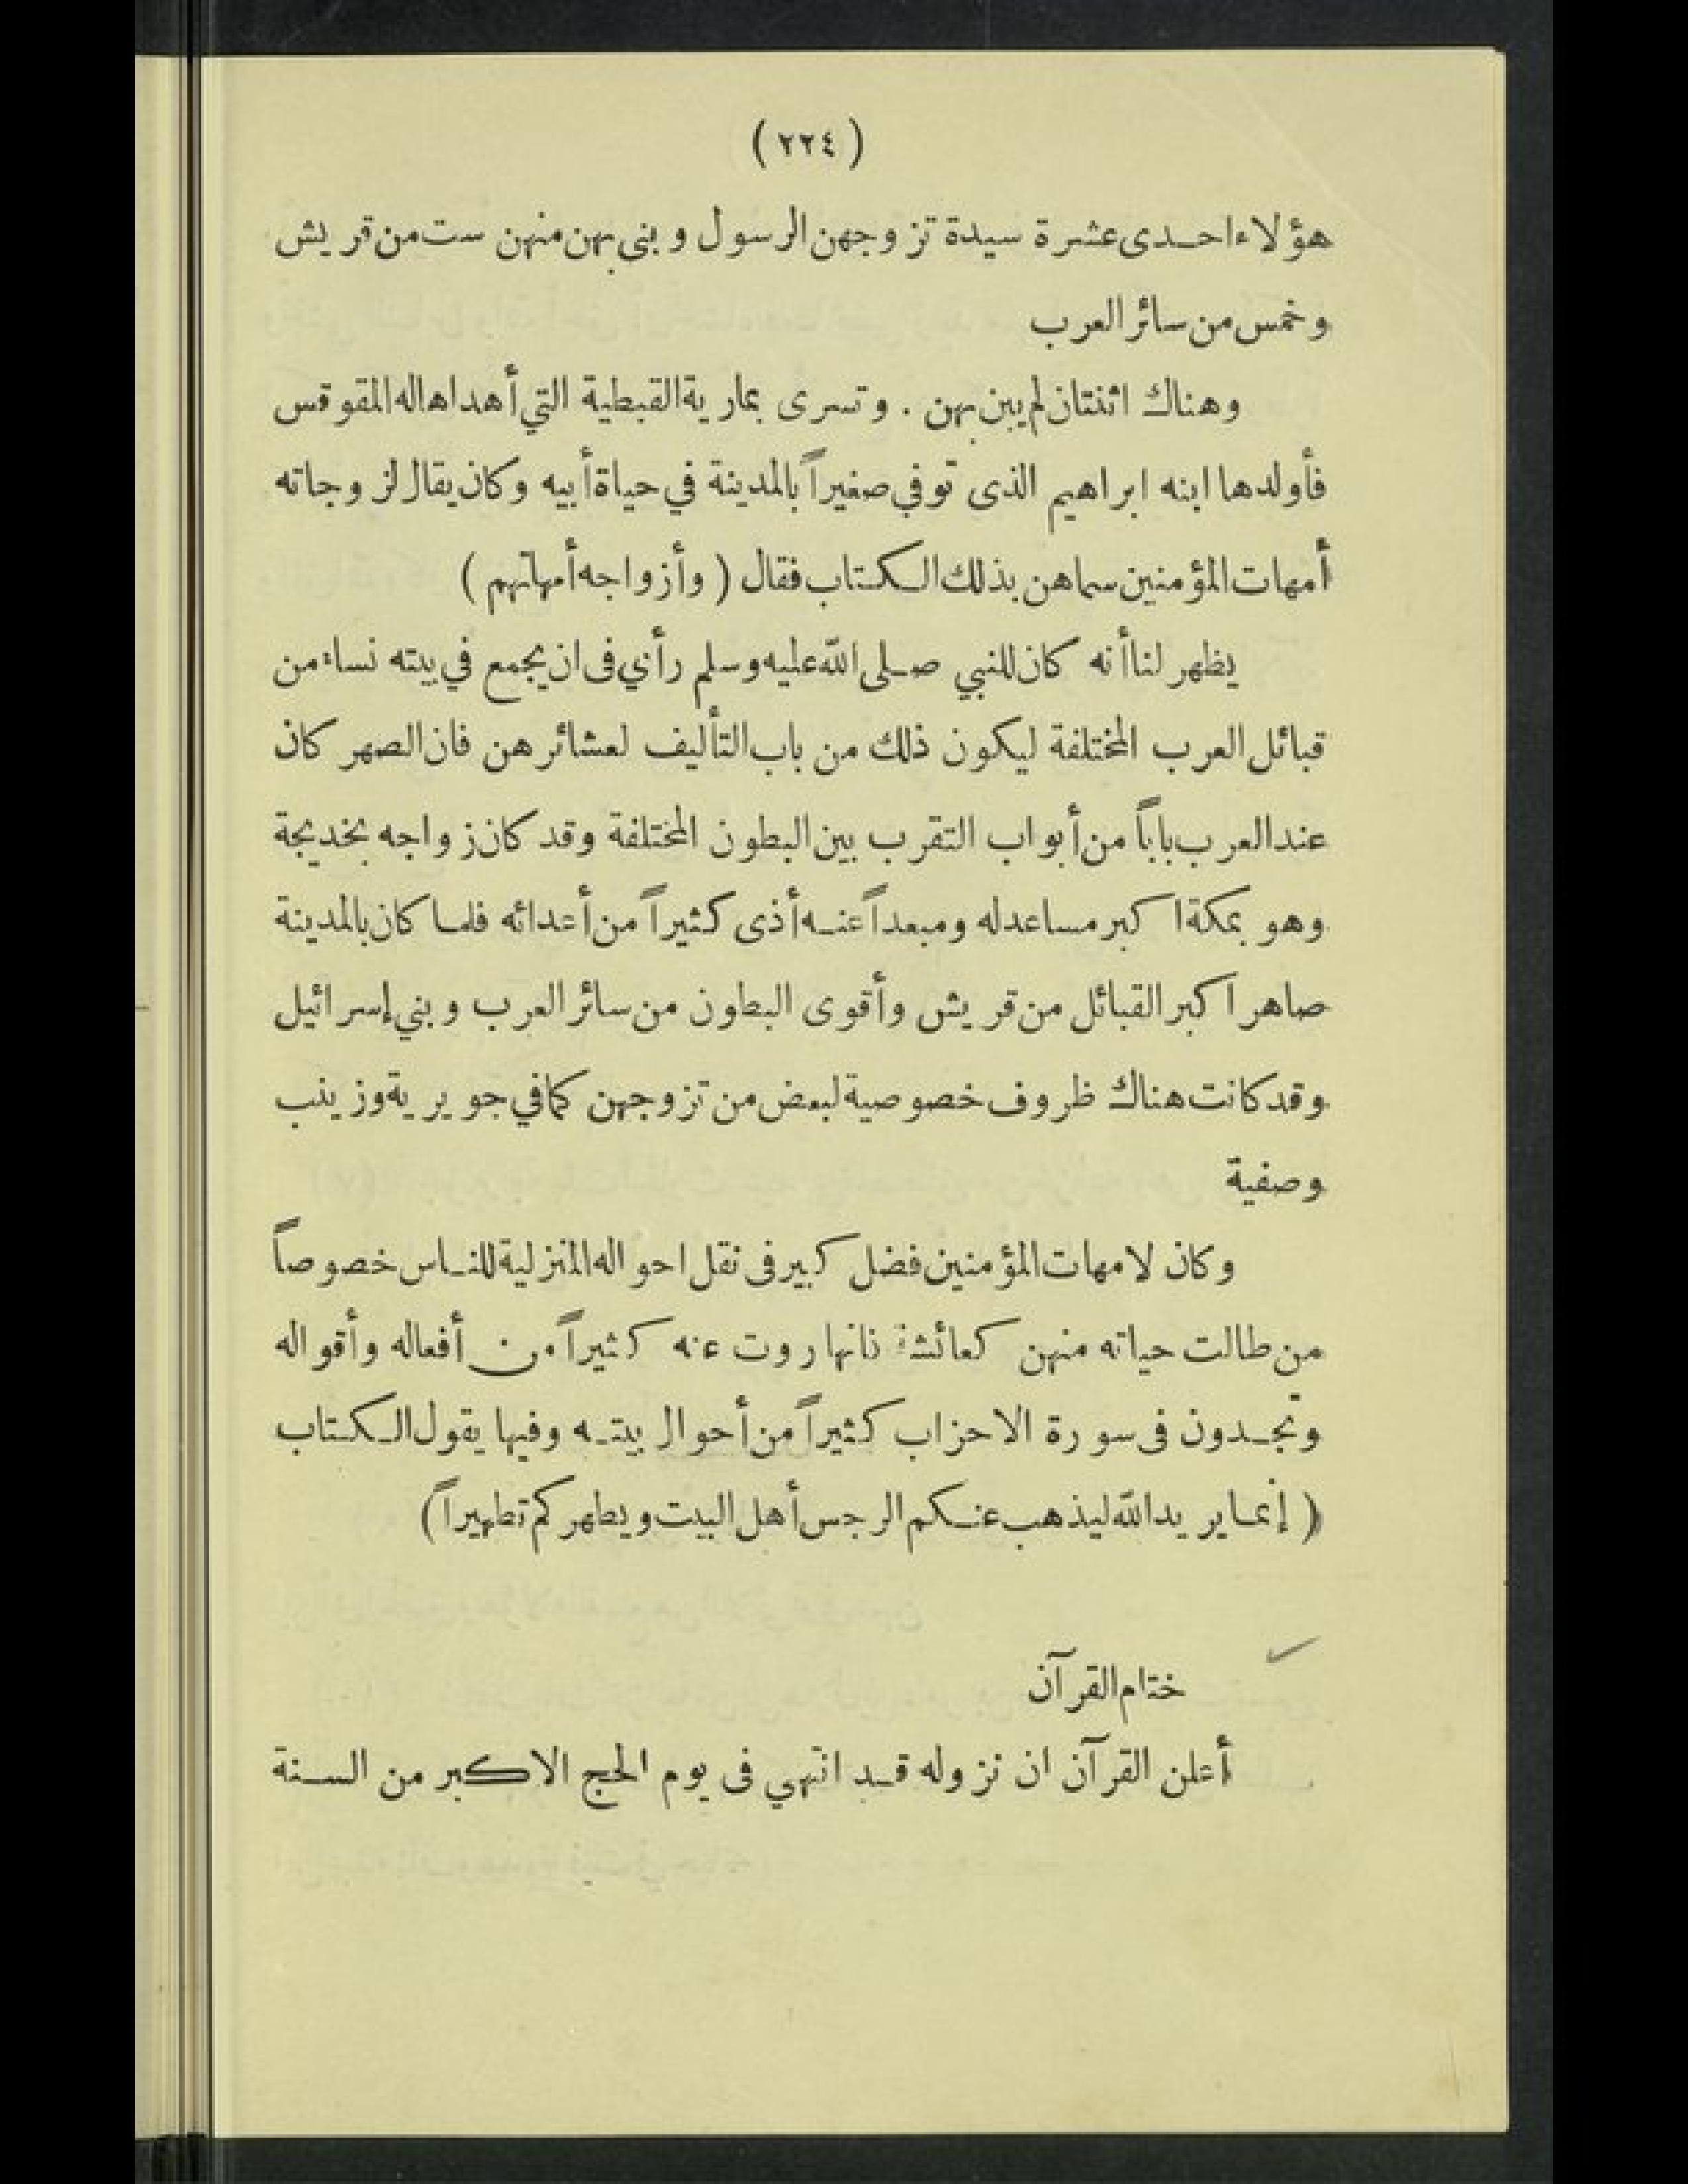 ( ٢٢٤ )
هؤلاء احدى عشرة سيدة تزوجهن الرسول وبنى بهن منهن ست من قريش
وخمس من سائر العرب
وهناك اثنتان لم يبن بهن . وتسرى بمارية القبطية التي أهداها له المقوقس
فأولدها ابنه ابراهيم الذى توفي صغيراً بالمدينة في حياة أبيه وكان يقال لزوجاته
أمهات المؤمنين سماهن بذلك الكتاب فقال ( وأزواجه أمهاتهم )
يظهر لنا أنه كان للنبي صلى الله عليه وسلم رأي فى ان يجمع في بيته نساء من
قبائل العرب المختلفة ليكون ذلك من باب التأليف لعشائرهن فان الصهر كان
عند العرب باباً من أبواب التقرب بين البطون المختلفة وقد كان زواجه بخديجة
وهو بمكة اكبر مساعد له ومبعداً عنه أذى كثيراً من أعدائه فلما كان بالمدينة
صاهر اكبر القبائل من قريش وأقوى البطون من سائر العرب وبني إسرائيل
وقد كانت هناك ظروف خصوصية لبعض من تزوجهن كما في جويرية وزينب
وصفية
وكان لامهات المؤمنين فضل كبير فى نقل احواله المنزلية للناس خصوصاً
من طالت حياته منهن كعائشة فانها روت عنه كثيراً من أفعاله وأقواله
وتجدون فى سورة الاحزاب كثيراً من أحوال بيته وفيها يقول الكتاب
( إنما يريد الله ليذهب عنكم الرجس أهل البيت ويطهركم تطهيراً )
ختام القرآن
أعلن القرآن ان نزوله قد انتهي فى يوم الحج الاكبر من السنة